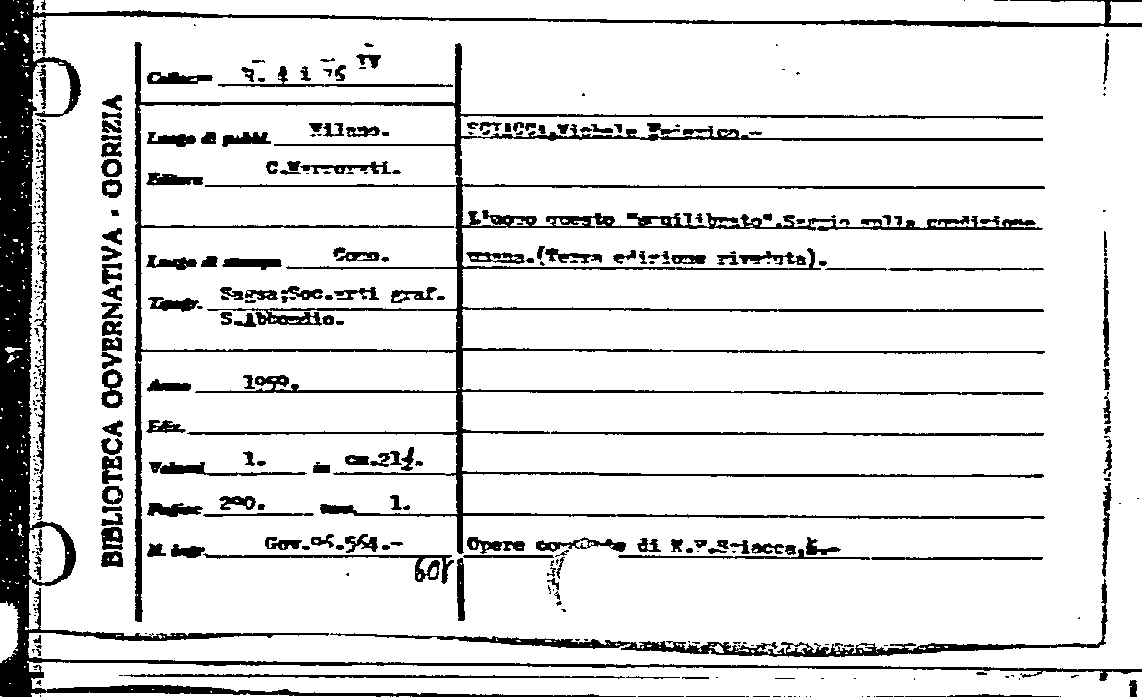 BIBLIOTECA GOVERNATIVA - GORIZIA
Collocaz
Luogo di pubbl. Milano.
Editore C.Marzorati.
Luogo di stampa Como.
Tipogr. Sagsa;Soc.arti graf.
S.Abbondio.
Anno 1959.
Ediz.
Volumi 1. in cm.21½.
Pagine 290. 1.
N. ingr. Gov.96.564.-
608
SCIACCA,Michele Federico.-
L'uomo questo "squilibrato".Saggio sulla condizione
umana.(Terza edizione riveduta).
Opere di M.F.Sciacca,